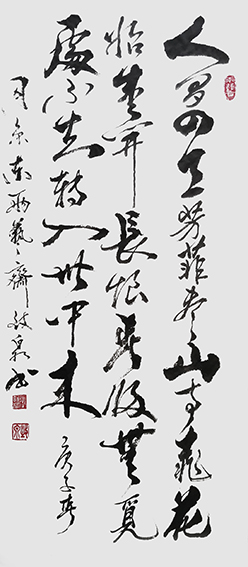 人間四月芳菲盡山寺桃花
始盛開長恨春歸無覓
處不知轉入此中來 庚子春
京東齋泉書